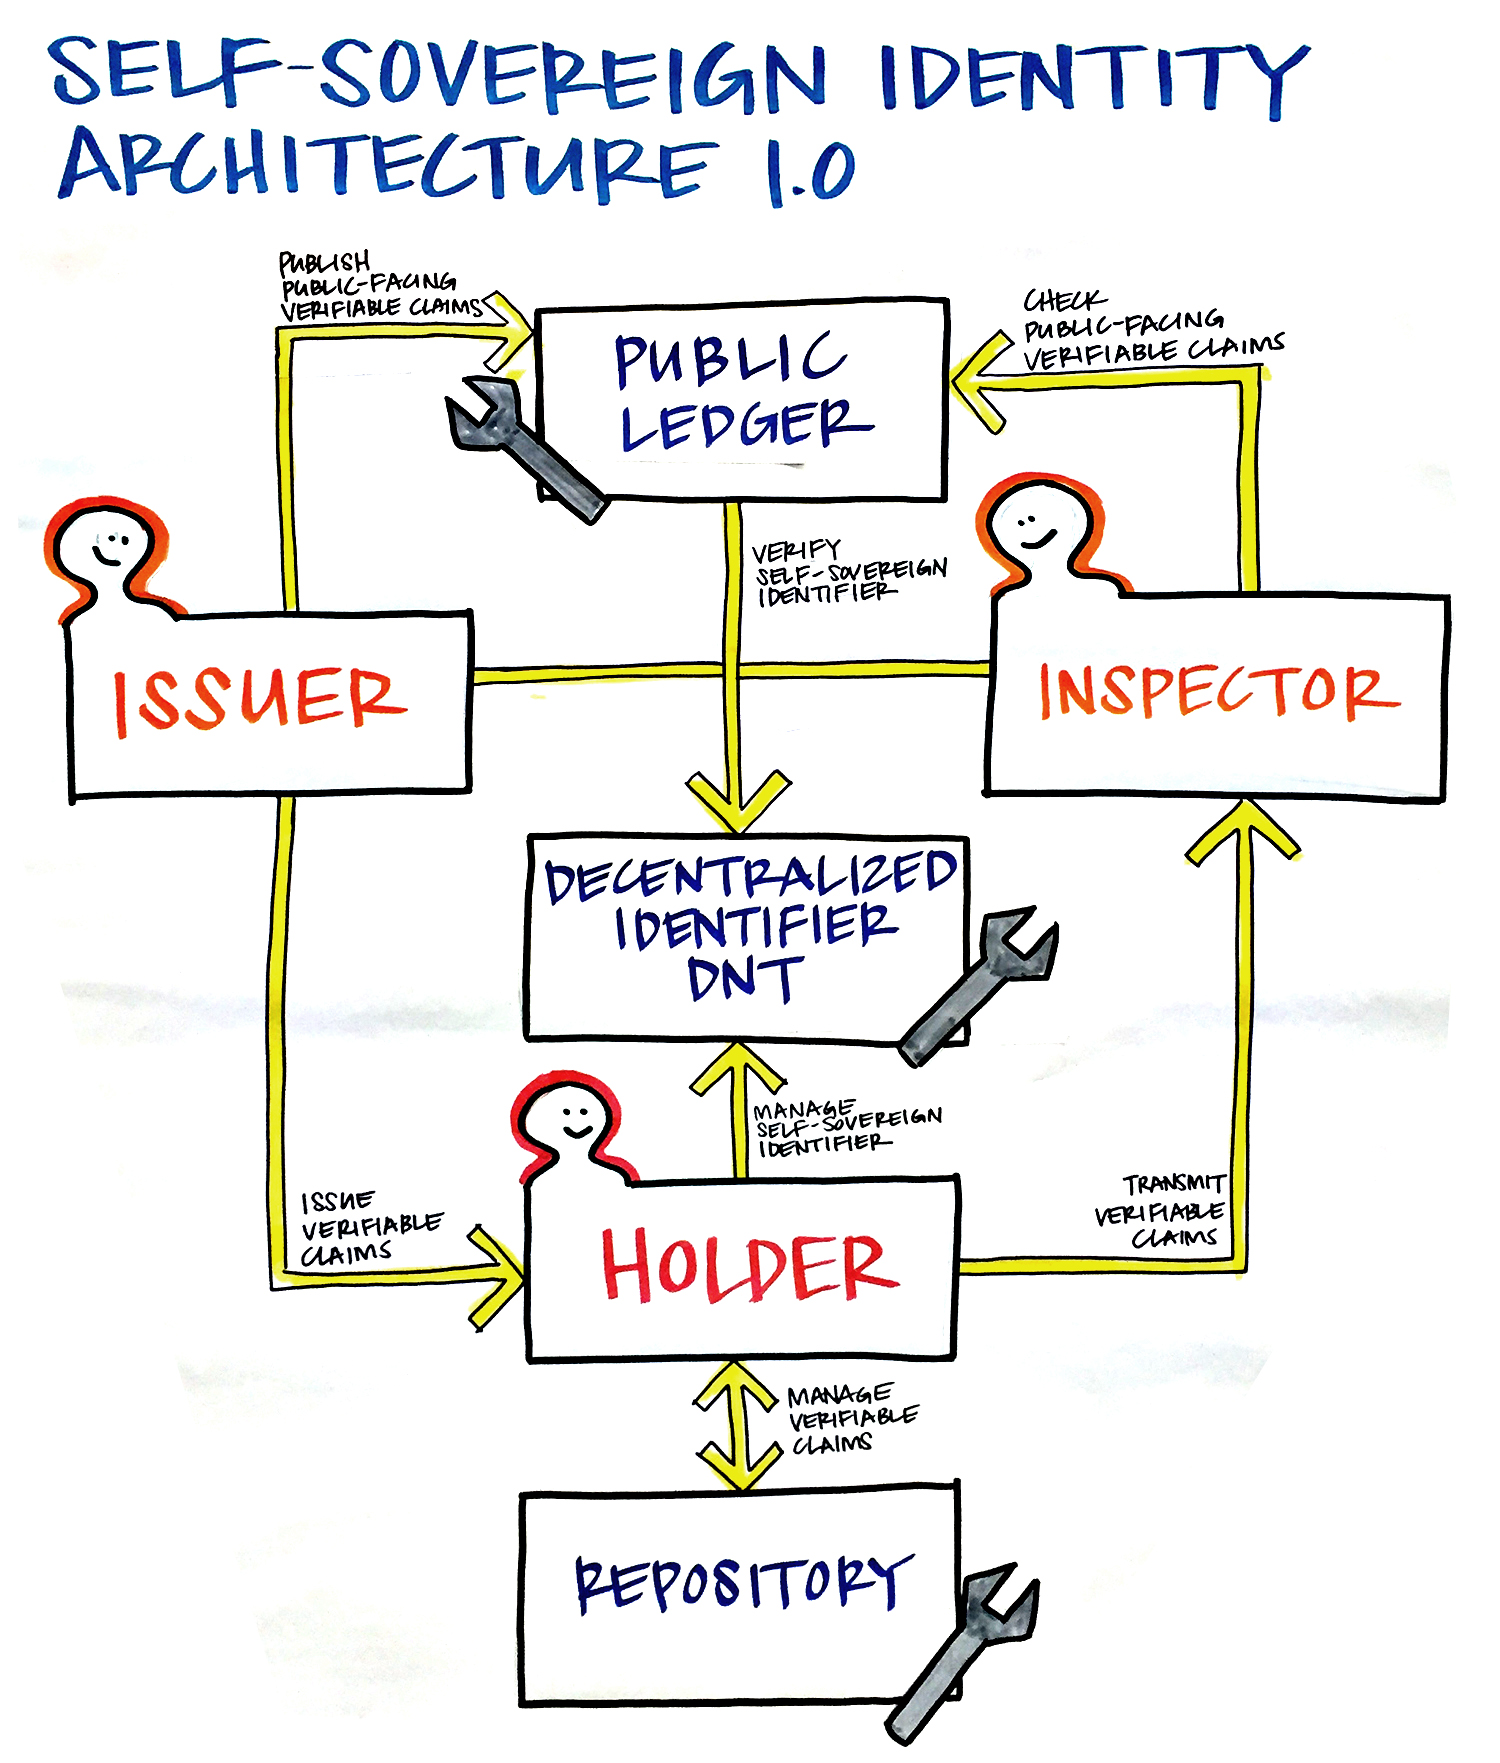 SELF-SOVEREIGN IDENTITY
ARCHITECTURE 1.0
PUBLISH
PUBLIC-FACING
VERIFIABLE CLAIMS
PUBLIC
LEDGER
CHECK
PUBLIC-FACING
VERIFIABLE CLAIMS
VERIFY
SELF-SOVEREIGN
IDENTIFIER
ISSUER
INSPECTOR
DECENTRALIZED
IDENTIFIER
DNT
MANAGE
SELF-SOVEREIGN
IDENTIFIER
ISSUE
VERIFIABLE
CLAIMS
HOLDER
TRANSMIT
VERIFIABLE
CLAIMS
MANAGE
VERIFIABLE
CLAIMS
REPOSITORY